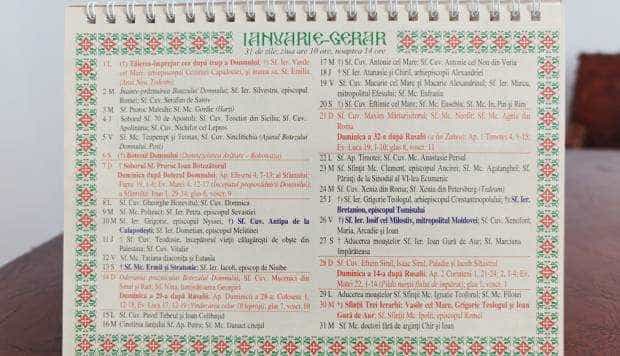 IANUARIE-GERAR
31 de zile, ziua are 10 ore, noaptea 14 ore
1 L (†) Tăierea-împrejur cea după trup a Domnului; †) Sf. Ier. Vasile
cel Mare, arhiepiscopul Cezareei Capadociei, și mama sa, Sf. Emilia
(Anul Nou, Tedeum)
2 M Înainte-prăznuirea Botezului Domnului; Sf. Ier. Silvestru, episcopul
Romei; Sf. Cuv. Serafim de Sarov
3 M Sf. Proroc Maleahi; Sf. Mc. Gordie (Harți)
4 J Soborul Sf. 70 de Apostoli; Sf. Cuv. Teoctist din Sicilia; Sf. Cuv.
Apolinaria; Sf. Cuv. Nichifor cel Lepros
5 V Sf. Mc. Teopempt și Teonas; Sf. Cuv. Sinclitichia (Ajunul Botezului
Domnului. Post)
6 S (†) Botezul Domnului (Dumnezeiasca Arătare - Boboteaza)
7 D † Soborul Sf. Proroc Ioan Botezătorul
Duminica după Botezul Domnului Ap. Efeseni 4, 7-13; a Sfântului:
Fapte 19, 1-8; Ev. Matei 4, 12-17 (Începutul propovăduirii Domnului);
a Sfântului: Ioan 1, 29-34; glas 6, voscr. 9
8 L Sf. Cuv. Gheorghe Hozevitul; Sf. Cuv. Domnica
9 M Sf. Mc. Polieuct; Sf. Ier. Petru, episcopul Sevastiei
10 M Sf. Ier. Grigorie, episcopul Nyssei; †) Sf. Cuv. Antipa de la
Calapodești; Sf. Ier. Dometian, episcopul Melitinei
11 J † Sf. Cuv. Teodosie, începătorul vieții călugărești de obște din
Palestina; Sf. Cuv. Vitalie
12 V Sf. Mc. Tatiana diaconița și Eutasia
13 S †) Sf. Mc. Ermil și Stratonic; Sf. Ier. Iacob, episcop de Nisibe
14 D Odovania praznicului Botezului Domnului; Sf. Cuv. Mucenici din
Sinai și Rait; Sf. Nina, luminătoarea Georgiei
Duminica a 29-a după Rusalii. Ap. Duminica a 28-a: Coloseni 1,
12-18; Ev. Luca 17, 12-19 (Vindecarea celor 10 leproși); glas 7, voscr. 10
15 L Sf. Cuv. Pavel Tebeul și Ioan Colibașul
16 M Cinstirea lanțului Sf. Ap. Petru; Sf. Mc. Danact citețul
17 M †) Sf. Cuv. Antonie cel Mare; Sf. Cuv. Antonie cel Nou din Veria
18 J †) Sf. Ier. Atanasie și Chiril, arhiepiscopii Alexandriei
19 V Sf. Cuv. Macarie cel Mare și Macarie Alexandrinul; †) Sf. Ier. Marcu,
mitropolitul Efesului; Sf. Mc. Eufrasia
20 S †) Sf. Cuv. Eftimie cel Mare; Sf. Mc. Eusebiu; Sf. Mc. In, Pin și Rim
21 D Sf. Cuv. Maxim Mărturisitorul; Sf. Mc. Neofit; Sf. Mc. Agnia din
Roma
Duminica a 32-a după Rusalii (a lui Zaheu); Ap. 1 Timotei 4, 9-15;
Ev. Luca 19, 1-10; glas 8, voscr. 11
22 L Sf. Ap. Timotei; Sf. Cuv. Mc. Anastasie Persul
23 M Sf. Sfințit Mc. Clement, episcopul Ancirei; Sf. Mc. Agatanghel; Sf.
Părinți de la Sinodul al VI-lea Ecumenic
24 M Sf. Cuv. Xenia din Roma; Sf. Cuv. Xenia din Petersburg (Tedeum)
25 J †) Sf. Ier. Grigorie Teologul, arhiepiscopul Constantinopolului; †) Sf. Ier.
Bretanion, episcopul Tomisului
26 V †) Sf. Ier. Iosif cel Milostiv, mitropolitul Moldovei; Sf. Cuv. Xenofont,
Maria, Arcadie și Ioan
27 S † Aducerea moaștelor Sf. Ier. Ioan Gură de Aur; Sf. Marciana
împărăteasa
28 D Sf. Cuv. Efrem Sirul, Isaac Sirul, Paladie și Iacob Sihastrul
Duminica a 14-a după Rusalii. Ap. 2 Corinteni 1, 21-24; 2, 1-4; Ev.
Matei 22, 1-14 (Pilda nunții fiului de împărat); glas 1, voscr. 1
29 L Aducerea moaștelor Sf. Sfințit Mc. Ignatie Teoforul; Sf. Mc. Filotei
30 M †) Sfinții Trei Ierarhi: Vasile cel Mare, Grigorie Teologul și Ioan
Gură de Aur; Sf. Sfințit Mc. Ipolit, episcopul Romei
31 M Sf. Mc. doctori fără de arginți Chir și Ioan